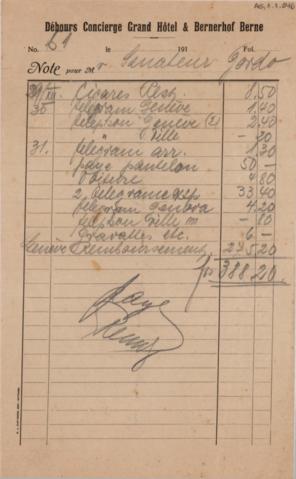 AG, 1.1.246
Débours Concierge Grand Hôtel & Bernerhof Berne
No. 61 le 191 Fol.
Note pour Mr Senateur Gordo
29/XII. Cigares Rest. 8.50
30 telegram Genève 1.40
telephon Geneve (2) 2.40
" Ville - 30
31. telegram arr. 1.30
paye pantelon 50 -
4.80
2 telegrame exp 33.40
telegram 4.20
telephon Ville - 80
Cravattes etc. 6 -
Genève Remboursement 275.20
frs 388.20
Payé